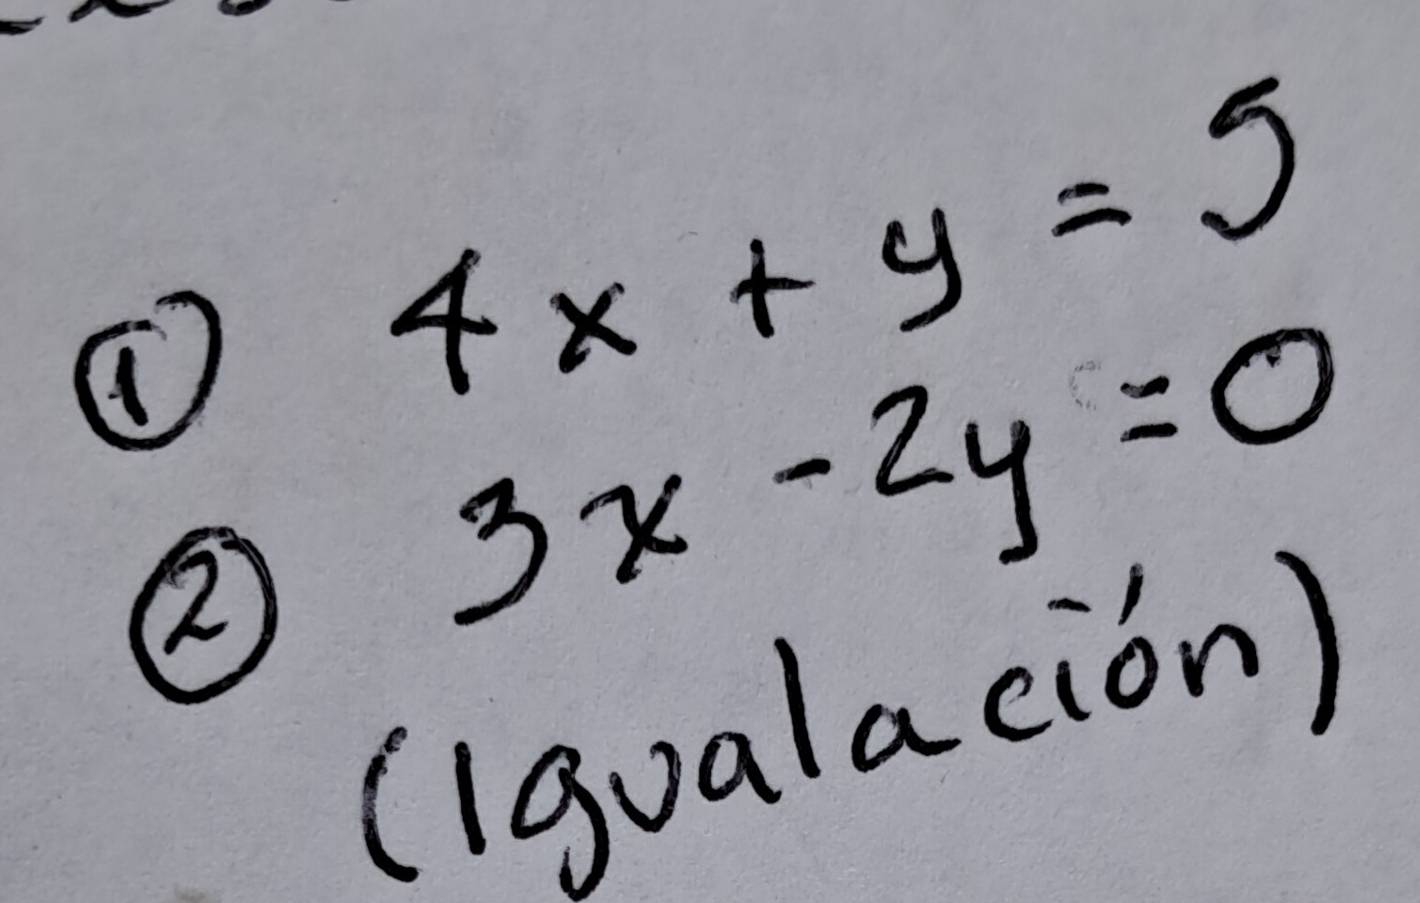 ① 4x + y = 5
② 3x - 2y = 0
(Igualación)